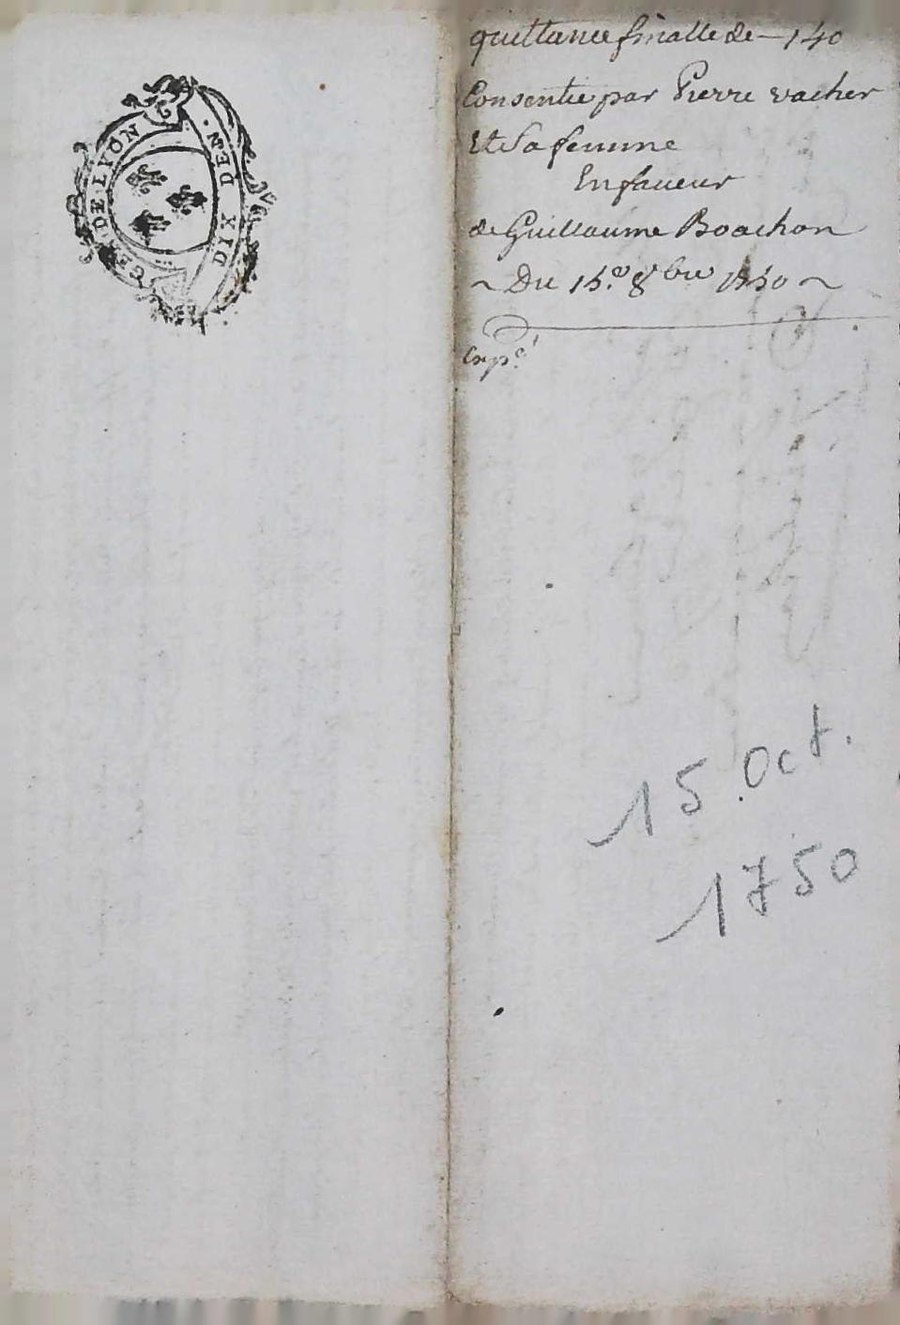 GEN. DE LYON
DIX DEN.
quittance finalle de – 140
Consentie par Pierre vacher
Et Sa femme
En faveur
de Guillaume Boachon
~ Du 15.e 8bre 1750 ~
Exp.é
15 Oct.
1750